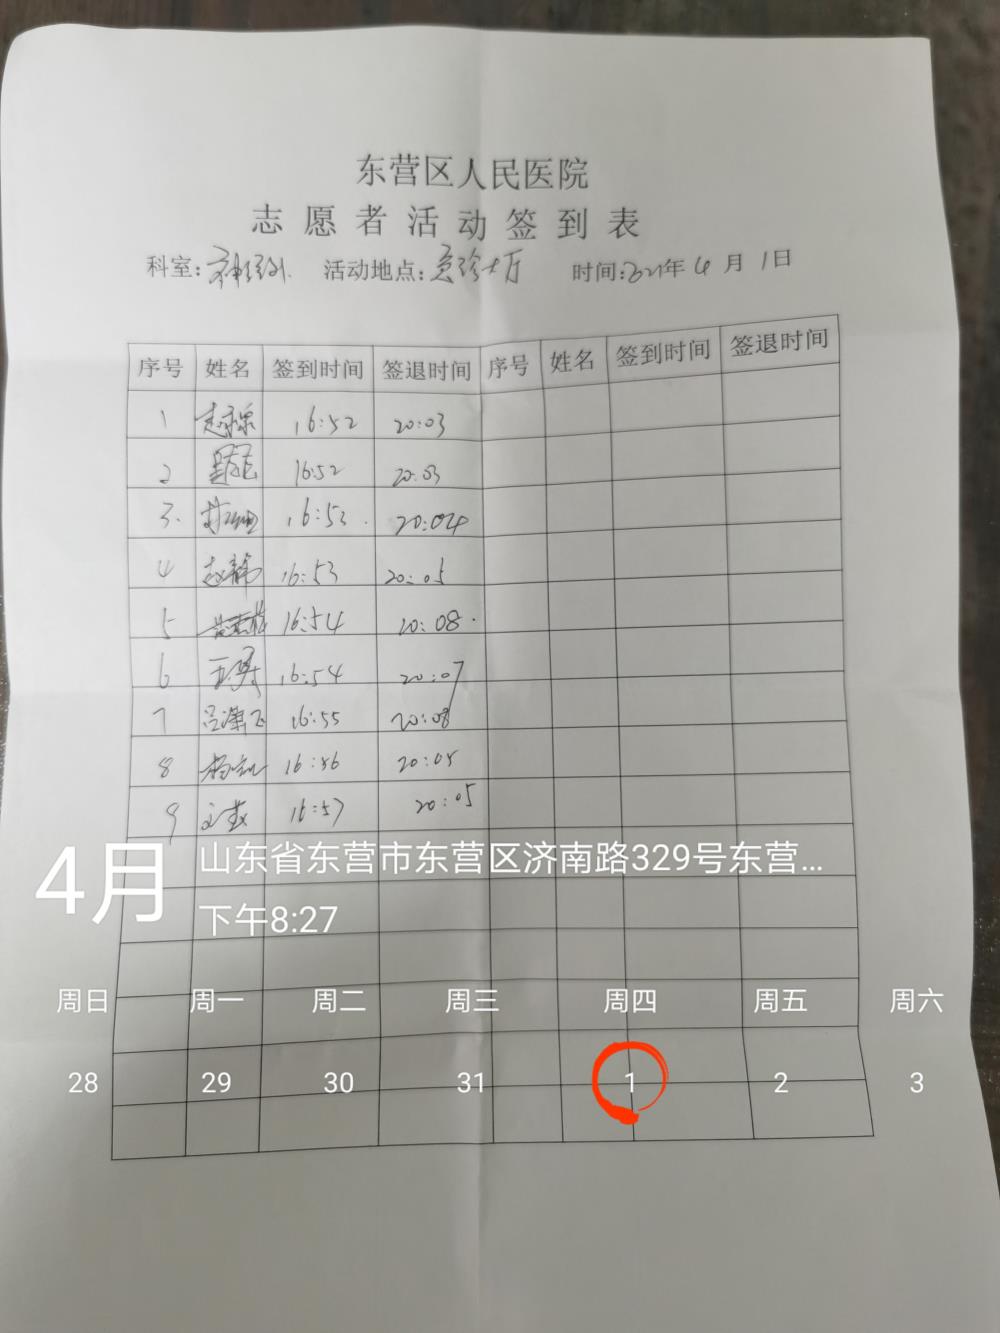 东营区人民医院
志愿者活动签到表
科室:神经外 活动地点:急诊大厅 时间:2021年4月1日
序号 姓名 签到时间 签退时间 序号 姓名 签到时间 签退时间
1 16:52 20:03
2 16:52 20:03
3. 16:53. 20:04
4 赵静 16:53 20:05
5 16:54 20:08.
6 16:54 20:07
7 吕潇飞 16:55 20:08
8 16:56 20:05
9 16:57 20:05
4月 山东省东营市东营区济南路329号东营...
下午8:27
周日 周一 周二 周三 周四 周五 周六
28 29 30 31 1 2 3